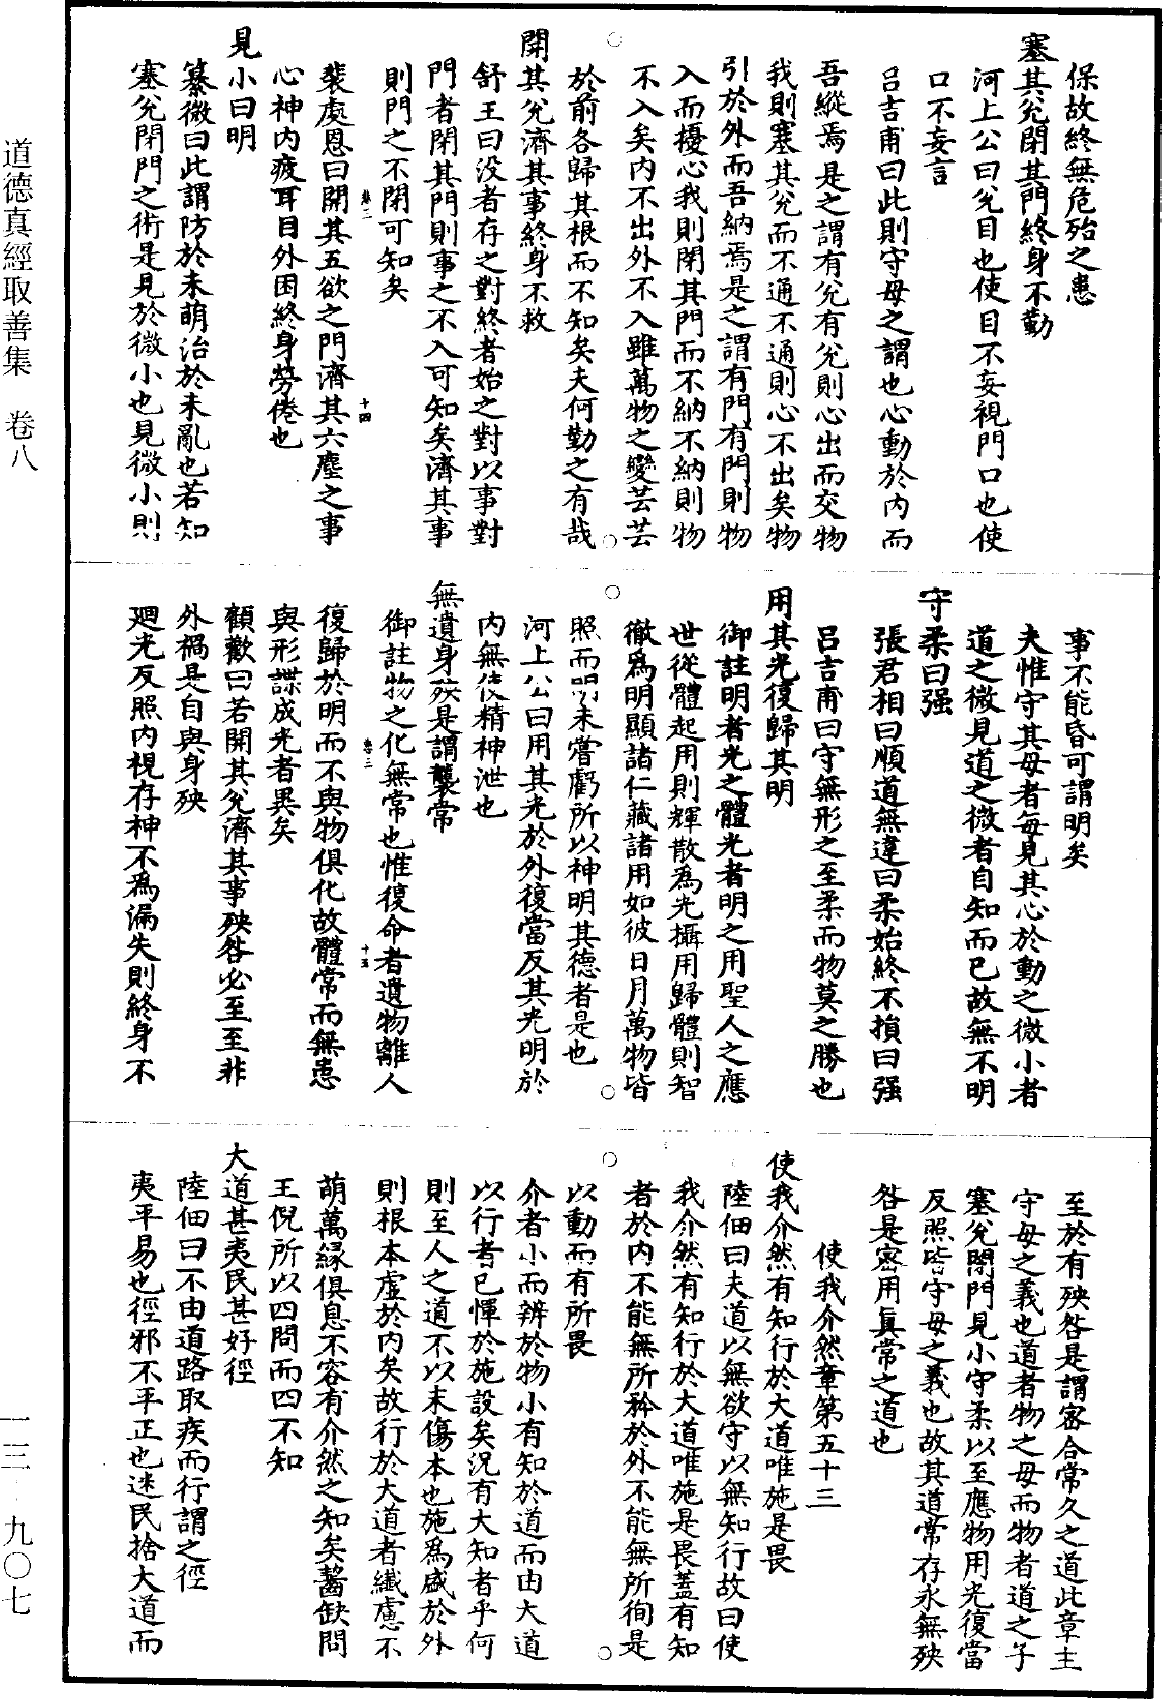 保故終無危殆之患
塞其兌閉其門終身不勤
河上公曰兌目也使目不妄視門口也使
口不妄言
呂吉甫曰此則守母之謂也心動於內而
吾縱焉是之謂有兌有兌則心出而交物
我則塞其兌而不通不通則心不出矣物
引於外而吾納焉是之謂有門有門則物
入而擾心我則閉其門而不納不納則物
不入矣內不出外不入雖萬物之變芸芸
於前各歸其根而不知矣夫何勤之有哉
開其兌濟其事終身不救
舒王曰没者存之對終者始之對以事對
門者閉其門則事之不入可知矣濟其事
則門之不閉可知矣
卷二
十四
裴處恩曰開其五欲之門濟其六塵之事
心神內疲耳目外困終身勞倦也
見小曰明
纂微曰此謂防於未萌治於未亂也若知
塞兌閉門之術是見於微小也見微小則
事不能昏可謂明矣
夫惟守其母者每見其心於動之微小者
道之微見道之微者自知而已故無不明
守柔曰强
張君相曰順道無違曰柔始終不損曰强
呂吉甫曰守無形之至柔而物莫之勝也
用其光復歸其明
御註明者光之體光者明之用聖人之應
世從體起用則輝散為光攝用歸體則智
徹為明顯諸仁藏諸用如彼日月萬物皆
照而明未嘗虧所以神明其德者是也
河上公曰用其光於外復當反其光明於
內無使精神泄也
無遺身殃是謂襲常
御註物之化無常也惟復命者遺物離人
卷三
十五
復歸於明而不與物俱化故體常而無患
與形諜成光者異矣
顧歡曰若開其兌濟其事殃咎必至至非
外禍是自與身殃
廻光反照內視存神不為漏失則終身不
至於有殃咎是謂密合常久之道此章主
守母之義也道者物之母而物者道之子
塞兌閉門見小守柔以至應物用光復當
反照皆守母之義也故其道常存永無殃
咎是密用真常之道也
使我介然章第五十三
使我介然有知行於大道唯施是畏
陸佃曰夫道以無欲守以無知行故曰使
我介然有知行於大道唯施是畏蓋有知
者於內不能無所矜於外不能無所徇是
以動而有所畏
介者小而辨於物小有知於道而由大道
以行者已憚於施設矣況有大知者乎何
則至人之道不以末傷本也施為盛於外
則根本虛於內矣故行於大道者纖慮不
萌萬緣俱息不容有介然之知矣齧缺問
王倪所以四問而四不知
大道甚夷民甚好徑
陸佃曰不由道路取疾而行謂之徑
夷平易也徑邪不平正也迷民捨大道而
道德真經取善集 卷八
一三·九〇七